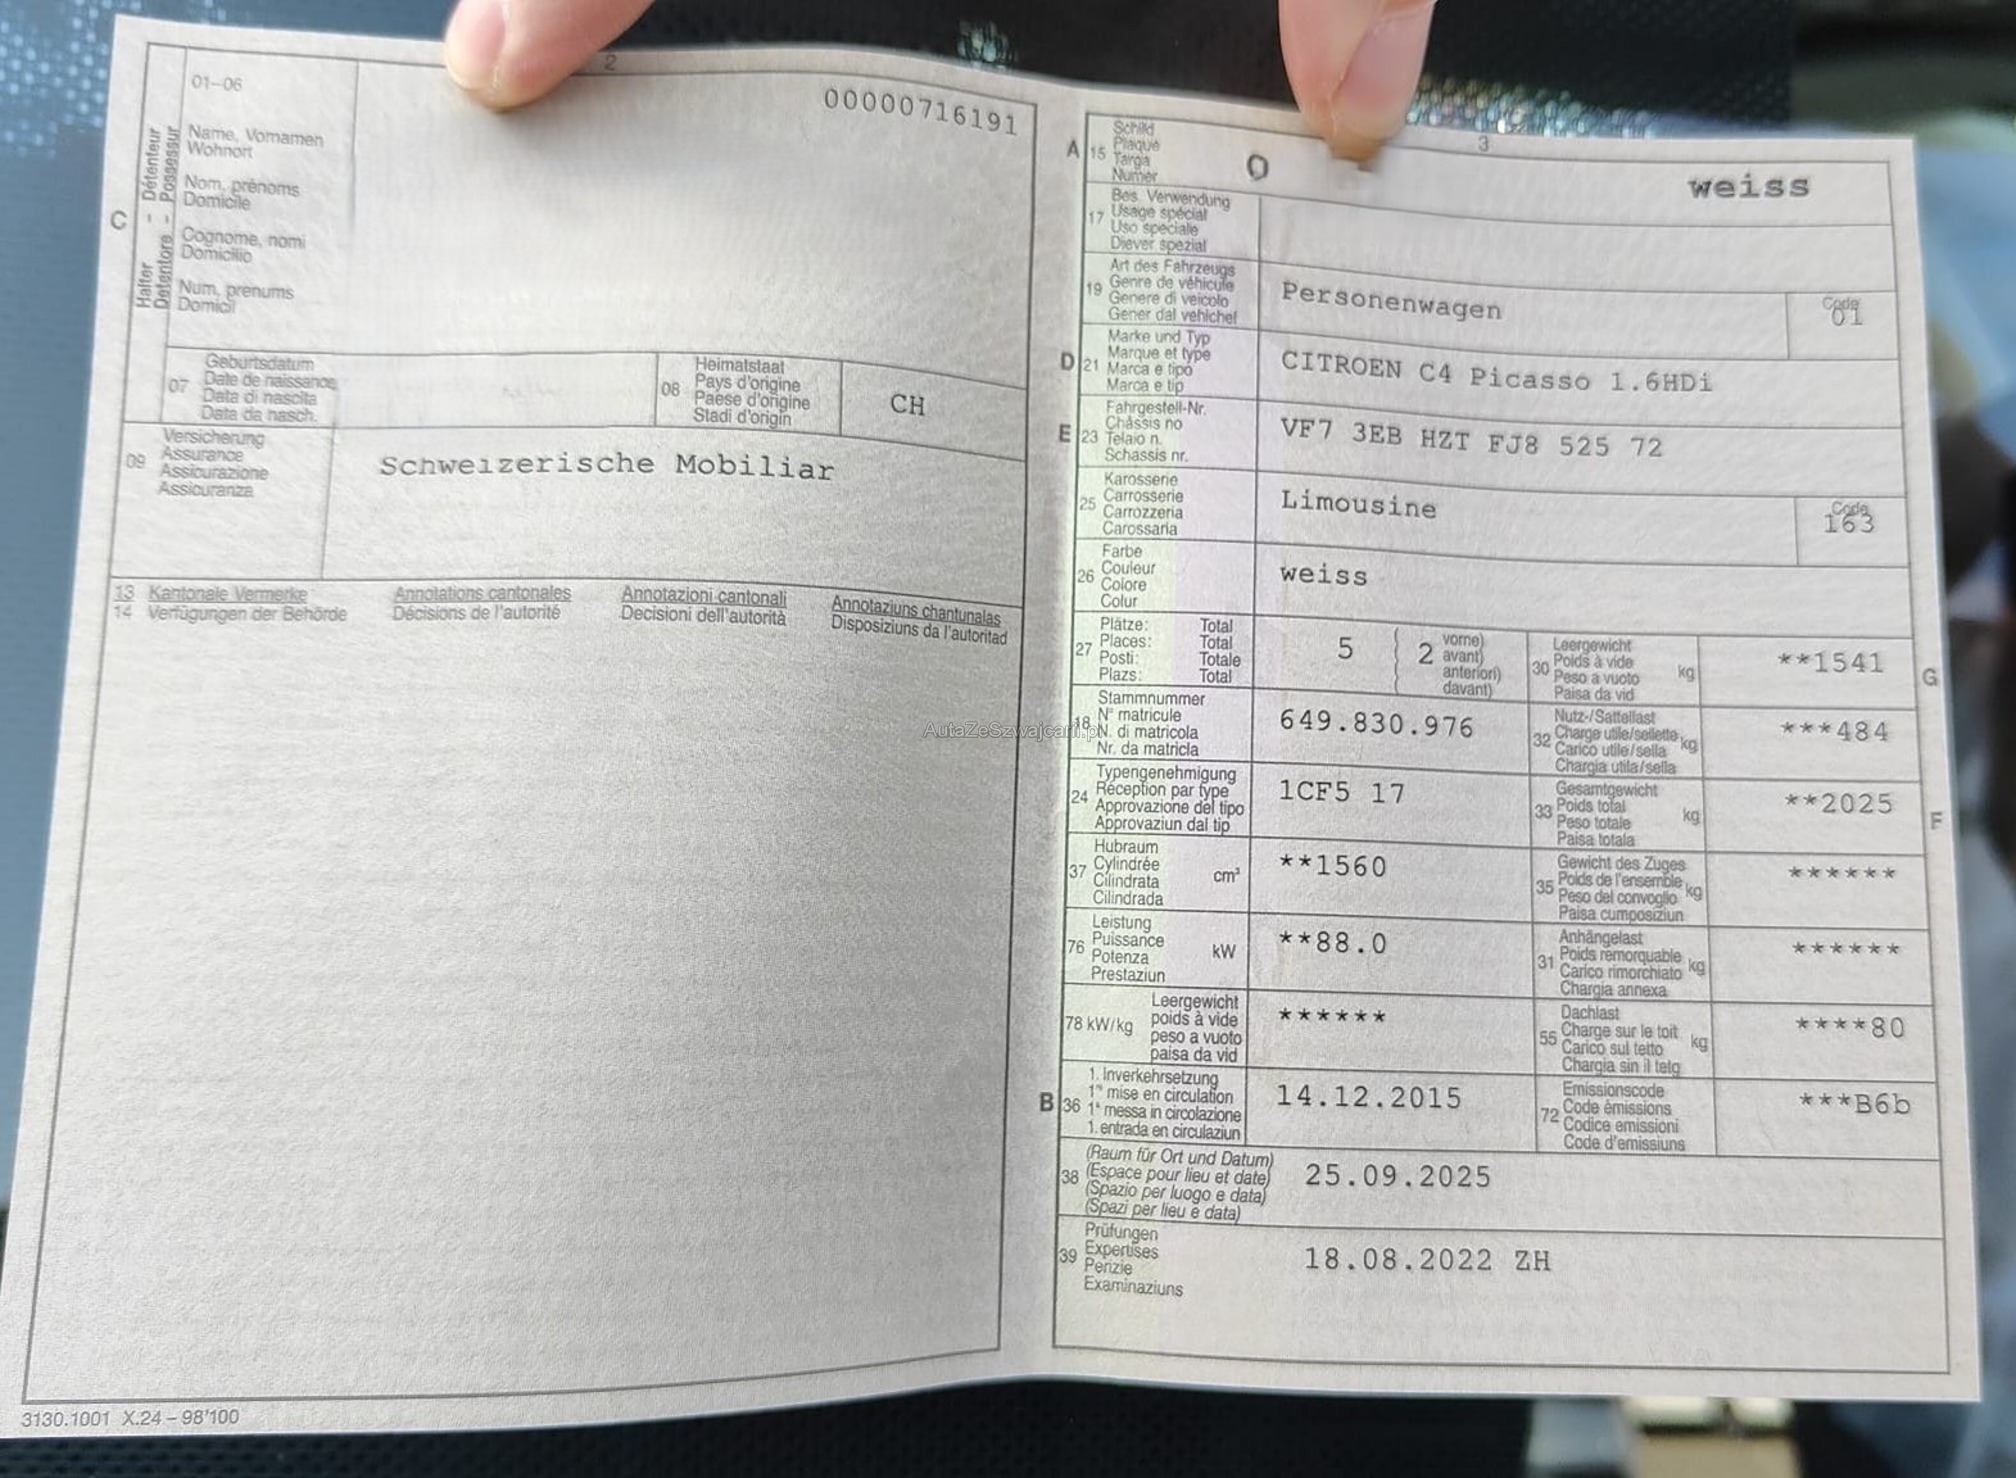 2
01–06
00000716191
C
Halter - Détenteur
Detentore - Possessur
Name, Vornamen
Wohnort
Nom, prénoms
Domicile
Cognome, nomi
Domicilio
Num, prenums
Domicil
07
Geburtsdatum
Date de naissance
Data di nascita
Data da nasch.
08
Heimatstaat
Pays d'origine
Paese d'origine
Stadi d'origin
CH
09
Versicherung
Assurance
Assicurazione
Assicuranza
Schweizerische Mobiliar
13 Kantonale Vermerke Annotations cantonales Annotazioni cantonali Annotaziuns chantunalas
14 Verfügungen der Behörde Décisions de l'autorité Decisioni dell'autorità Disposiziuns da l'autoritad
3130.1001 X.24 – 98'100
3
A 15
Schild
Plaque
Targa
Numer
weiss
17
Bes. Verwendung
Usage spécial
Uso speciale
Diever spezial
19
Art des Fahrzeugs
Genre de véhicule
Genere di veicolo
Gener dal vehichel
Personenwagen
Code
01
D 21
Marke und Typ
Marque et type
Marca e tipo
Marca e tip
CITROEN C4 Picasso 1.6HDi
E 23
Fahrgestell-Nr.
Châssis no
Telaio n.
Schassis nr.
VF7 3EB HZT FJ8 525 72
25
Karosserie
Carrosserie
Carrozzeria
Carossaria
Limousine
Code
163
26
Farbe
Couleur
Colore
Colur
weiss
27
Plätze: Total
Places: Total
Posti: Totale
Plazs: Total
5
2
vorne)
avant)
anteriori)
davant)
30
Leergewicht
Poids à vide
Peso a vuoto
Paisa da vid
kg
**1541
G
18
Stammnummer
N° matricule
N. di matricola
Nr. da matricla
649.830.976
32
Nutz-/Sattellast
Charge utile/sellette
Carico utile/sella
Chargia utila/sella
kg
***484
24
Typengenehmigung
Réception par type
Approvazione del tipo
Approvaziun dal tip
1CF5 17
33
Gesamtgewicht
Poids total
Peso totale
Paisa totala
kg
**2025
F
37
Hubraum
Cylindrée
Cilindrata
Cilindrada
cm³
**1560
35
Gewicht des Zuges
Poids de l'ensemble
Peso del convoglio
Paisa cumposiziun
kg
******
76
Leistung
Puissance
Potenza
Prestaziun
kW
**88.0
31
Anhängelast
Poids remorquable
Carico rimorchiato
Chargia annexa
kg
******
78 kW/kg
Leergewicht
poids à vide
peso a vuoto
paisa da vid
******
55
Dachlast
Charge sur le toit
Carico sul tetto
Chargia sin il tetg
kg
****80
B 36
1. Inverkehrsetzung
1re mise en circulation
1a messa in circolazione
1. entrada en circulaziun
14.12.2015
72
Emissionscode
Code émissions
Codice emissioni
Code d'emissiuns
***B6b
38
(Raum für Ort und Datum)
(Espace pour lieu et date)
(Spazio per luogo e data)
(Spazi per lieu e data)
25.09.2025
39
Prüfungen
Expertises
Perizie
Examinaziuns
18.08.2022 ZH
AutaZeSzwajcarii.pl